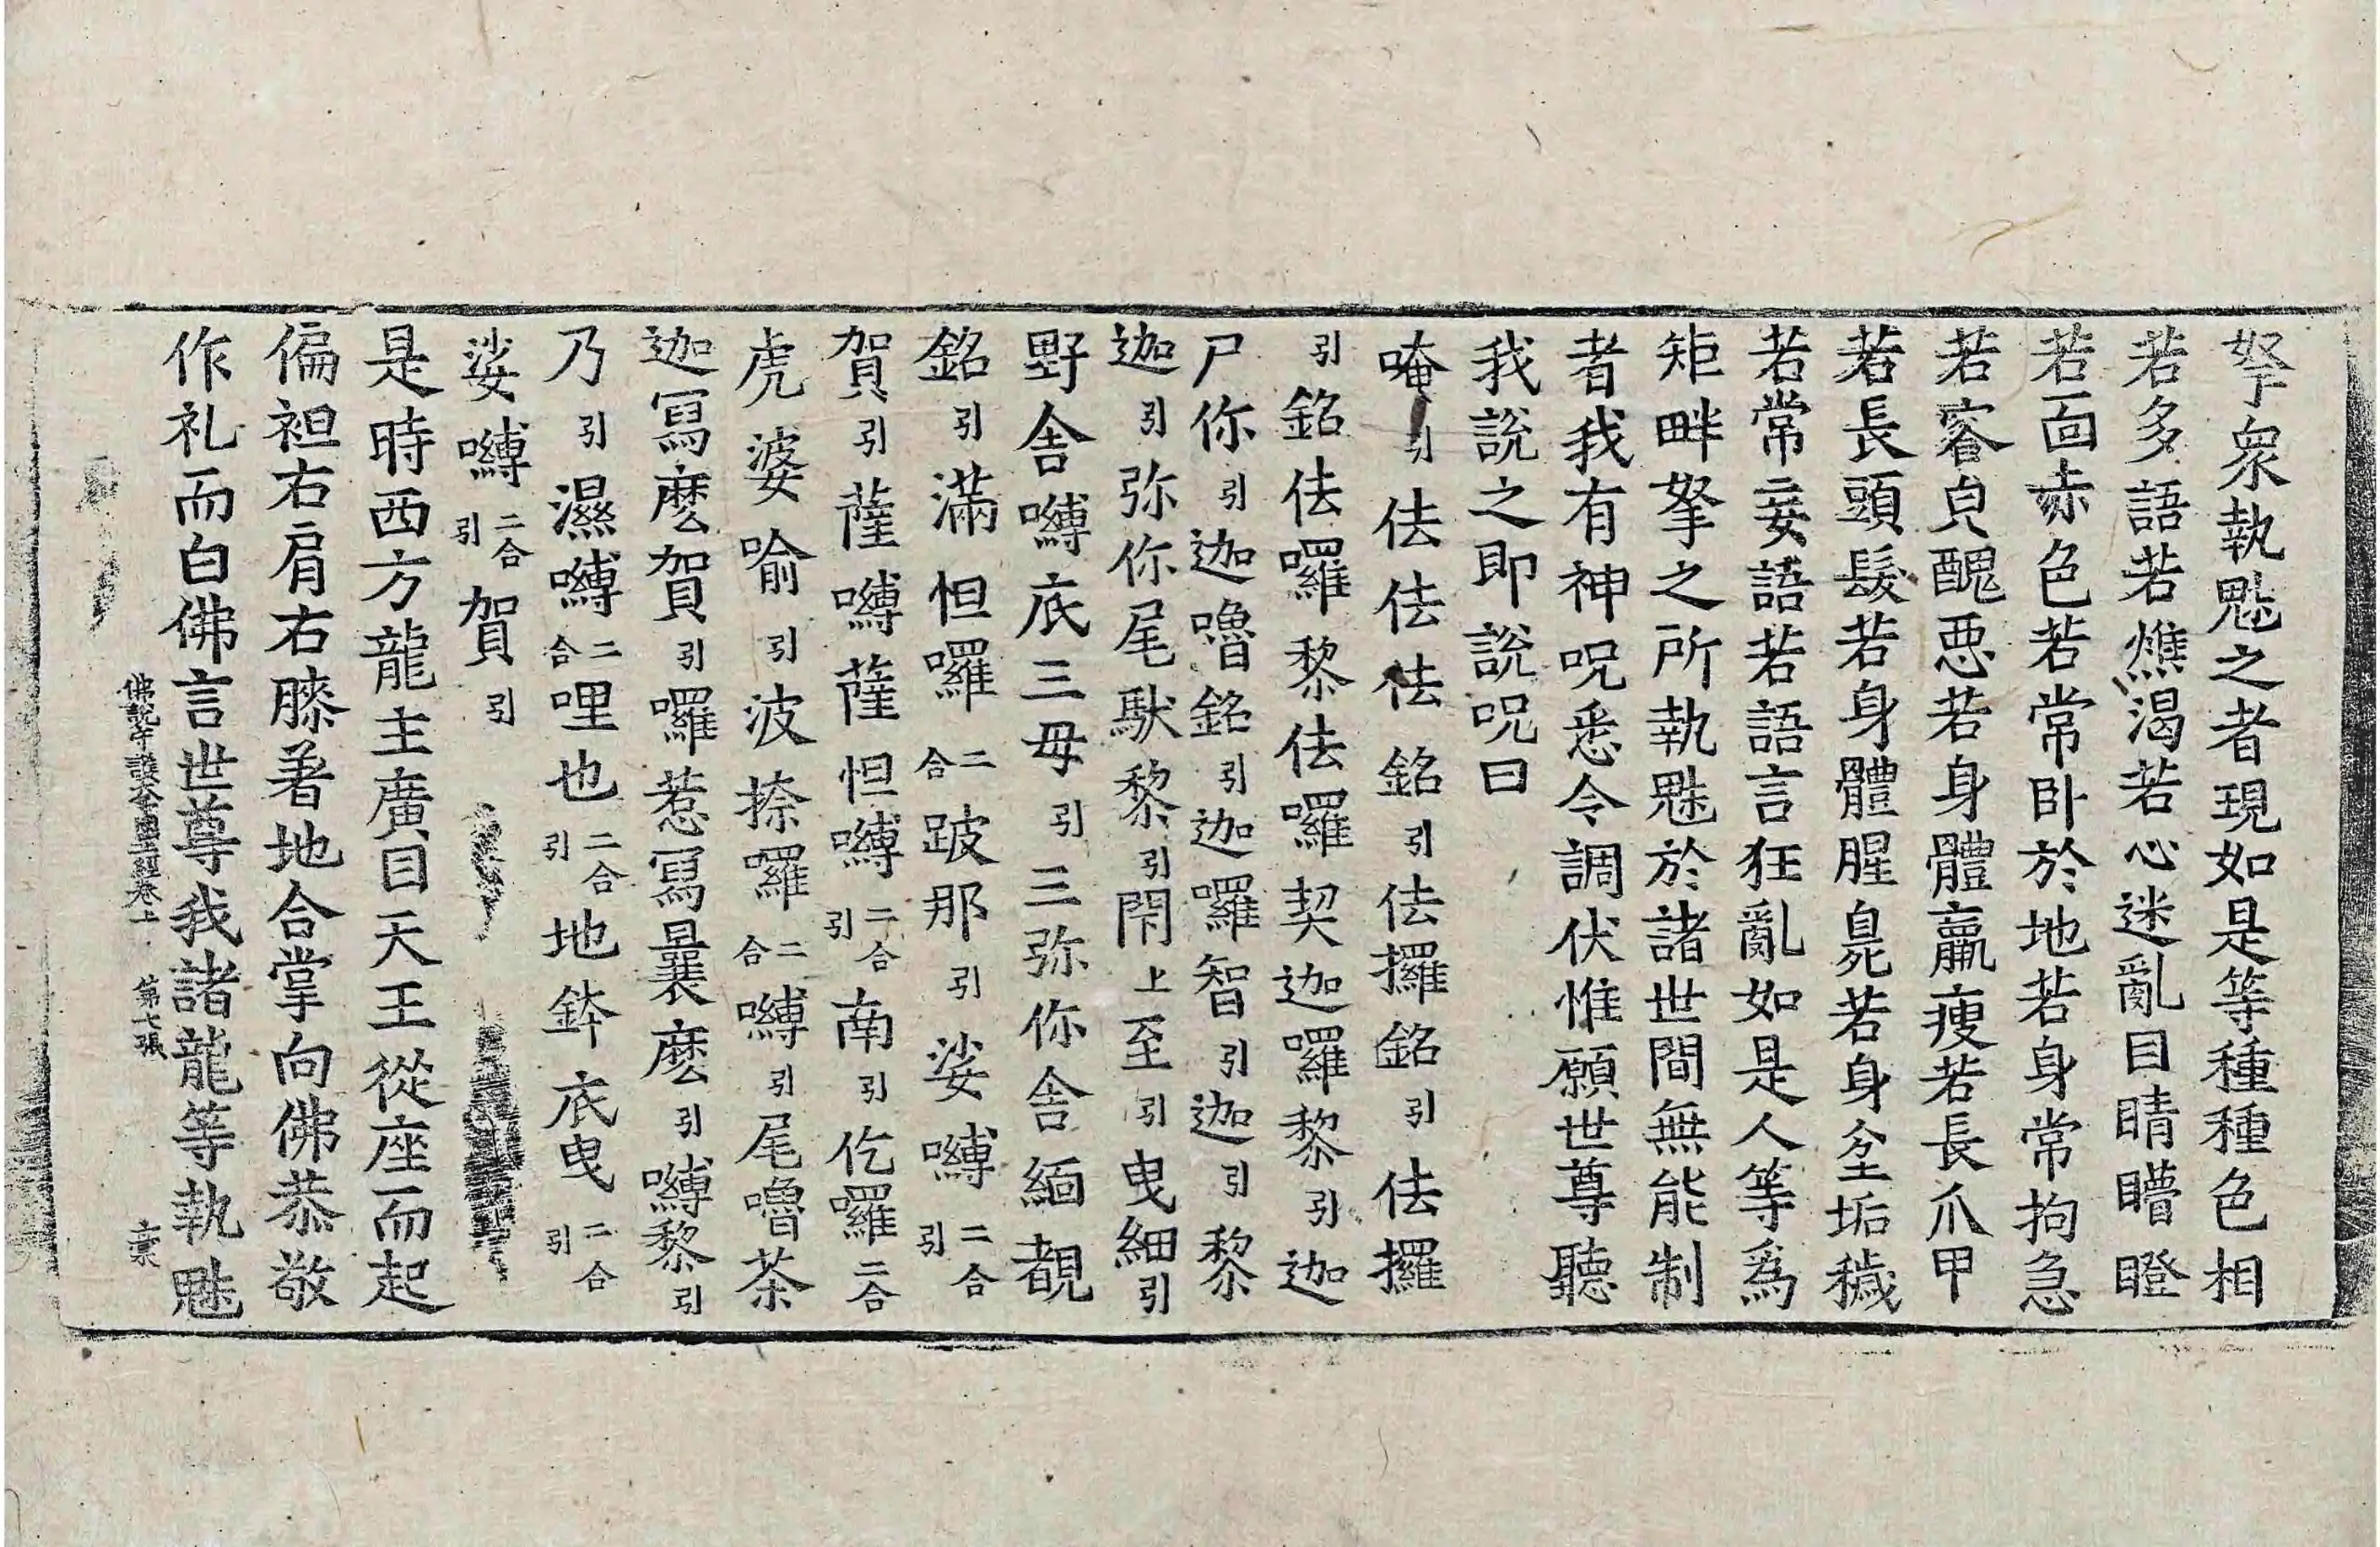 拏衆執魅之者現如是等種種色相
若多語若燋渴若心迷亂目睛矒瞪
若面赤色若常卧於地若身常拘急
若容皃醜惡若身體羸瘦若長爪甲
若長頭髮若身體腥臰若身坌垢穢
若常妄語若語言狂亂如是人等爲
矩畔拏之所執魅於諸世間無能制
者我有神呪悉令調伏惟願世尊聽
我說之即說呪曰
唵引佉佉佉銘引佉攞銘引佉攞
引銘佉囉黎佉囉契迦囉黎引迦
尸你引迦嚕銘引迦囉智引迦引黎
迦引弥你尾馱黎引閇上至引曳細引
野舍嚩底三母引三弥你舍緬覩
銘引滿怛囉二合跛那引娑嚩二合引
賀引薩嚩薩怛嚩二合引南引仡囉二合
虎婆喻引波捺囉二合嚩引尾嚕茶
迦寫麽賀引囉惹寫曩麽引嚩黎引
乃引濕嚩二合哩也二合引地鉢底曳二合引
娑嚩二合引賀引
是時西方龍主廣目天王從座而起
偏袒右肩右膝著地合掌向佛恭敬
作礼而白佛言世尊我諸龍等執魅
佛說守護大千國土經卷上 第七張